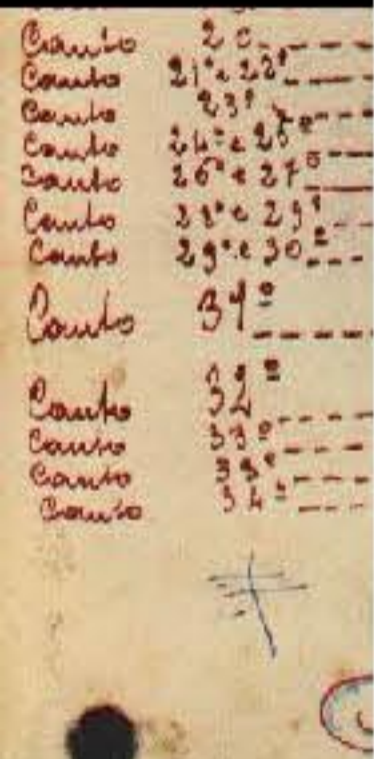 Canto 20----
Canto 21º e 22º----
Canto 23º----
Canto 24º e 25º----
Canto 26º e 27º----
Canto 28º e 29º----
Canto 29º e 30º----
Canto 31º----
Canto 32º----
Canto 33º----
Canto 33º----
Canto 34º----